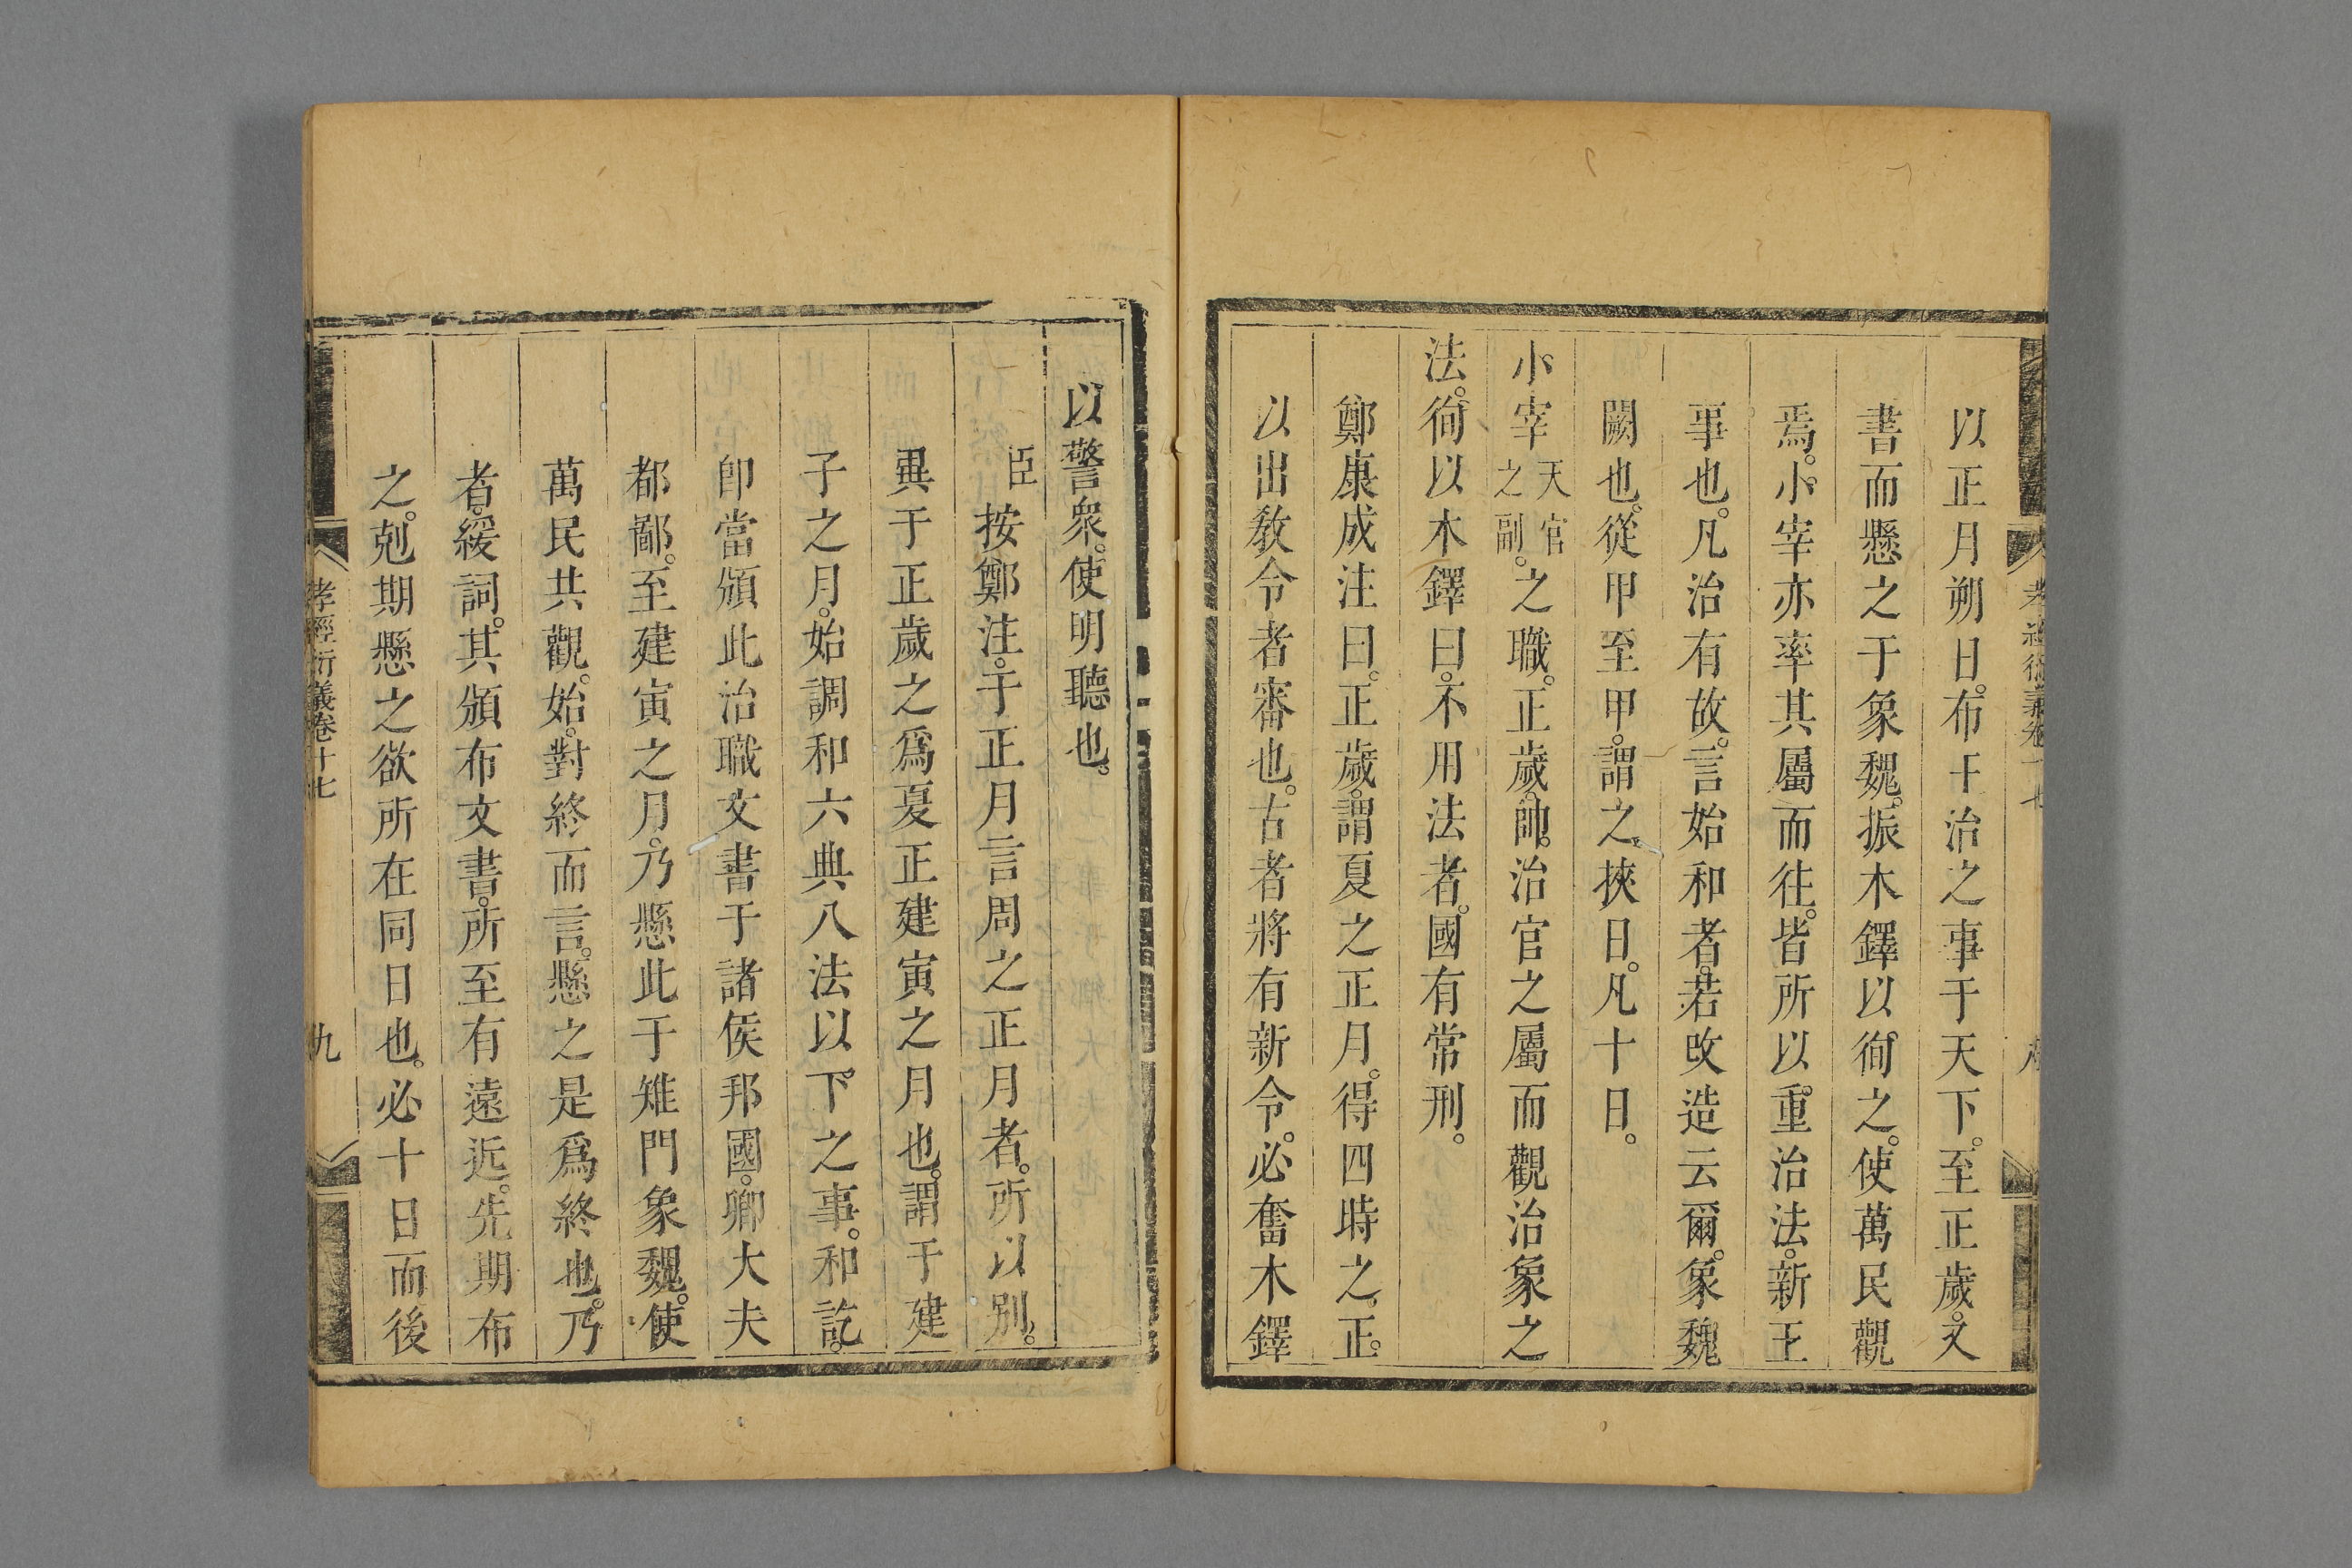 以正月朔日。布王治之事于天下。至正歲。又
書而懸之于象魏。振木鐸以徇之。使萬民觀
焉。小宰亦率其屬而往。皆所以重治法。新王
事也。凡治有故。言始和者。若改造云爾。象魏
闕也。從甲至甲。謂之挾日。凡十日。
小宰天官之副。之職。正歲。帥治官之屬而觀治象之
法。徇以木鐸曰。不用法者。國有常刑。
鄭康成注曰。正歲。謂夏之正月。得四時之正。
以出教令者審也。古者將有新令。必奮木鐸
以警衆。使明聽也。
臣按鄭注。于正月言周之正月者。所以別。
異于正歲之爲夏正建寅之月也。謂于建
子之月。始調和六典八法以下之事。和訖。
卽當頒此治職文書于諸侯邦國。卿大夫
都鄙。至建寅之月。乃懸此于雉門象魏。使
萬民共觀。始。對終而言。懸之是爲終也。乃
者。緩詞。其頒布文書。所至有遠近。先期布
之。剋期懸之欲所在同日也。必十日而後
孝經衍義卷十七
九